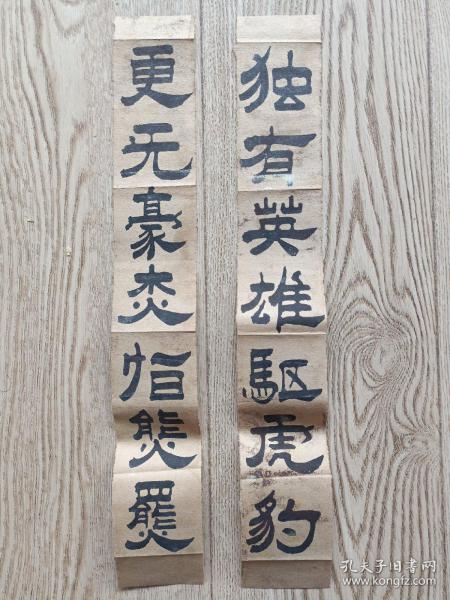 独有英雄驱虎豹
更无豪杰怕熊罴
孔夫子旧书网
www.kongfz.com